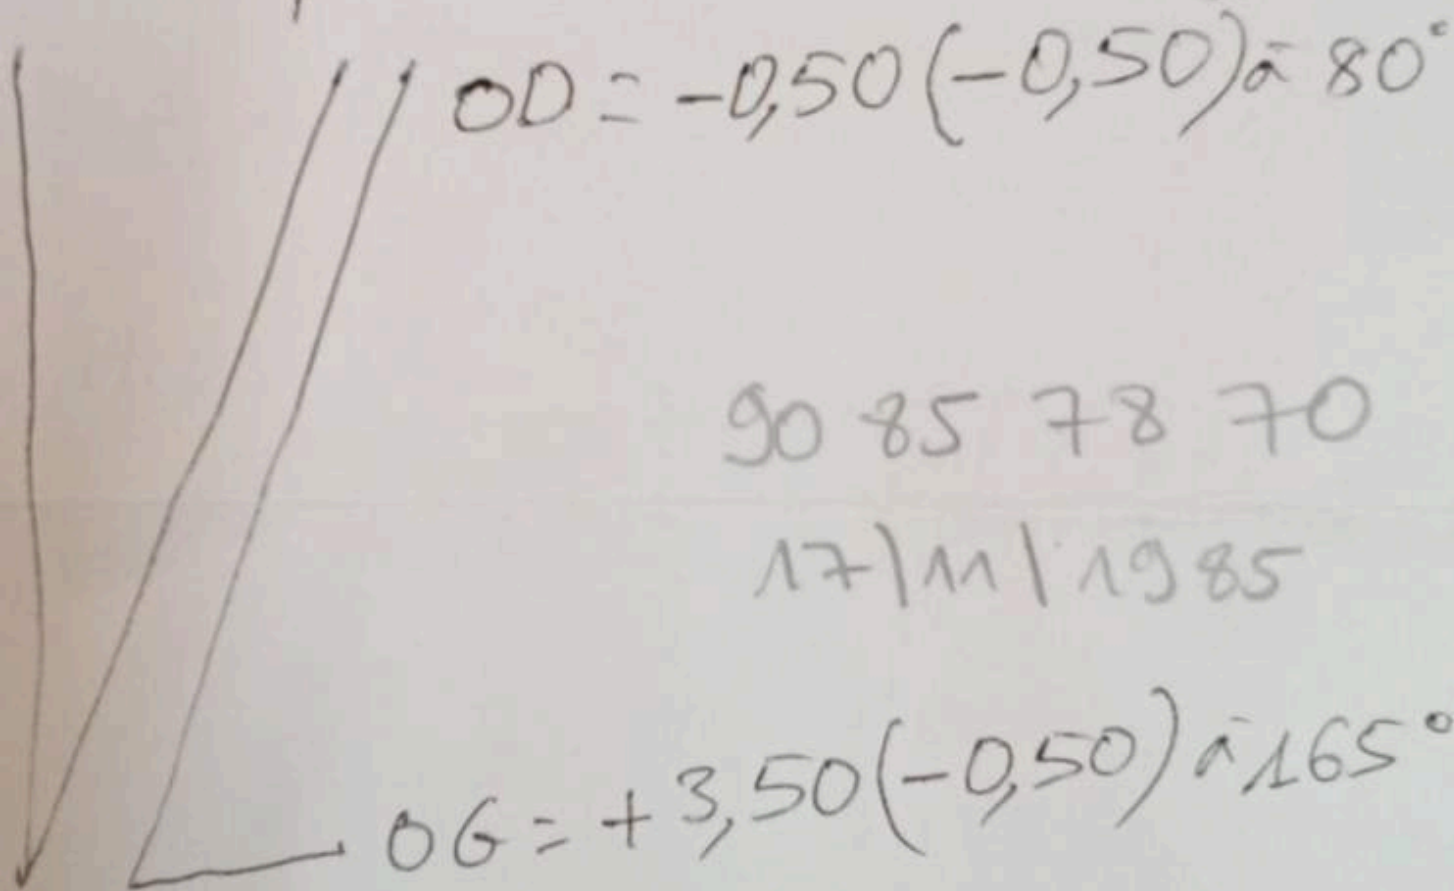 VL OD = -0,50 (-0,50) à 80°
90 85 78 70
17/11/1985
OG = +3,50 (-0,50) à 165°